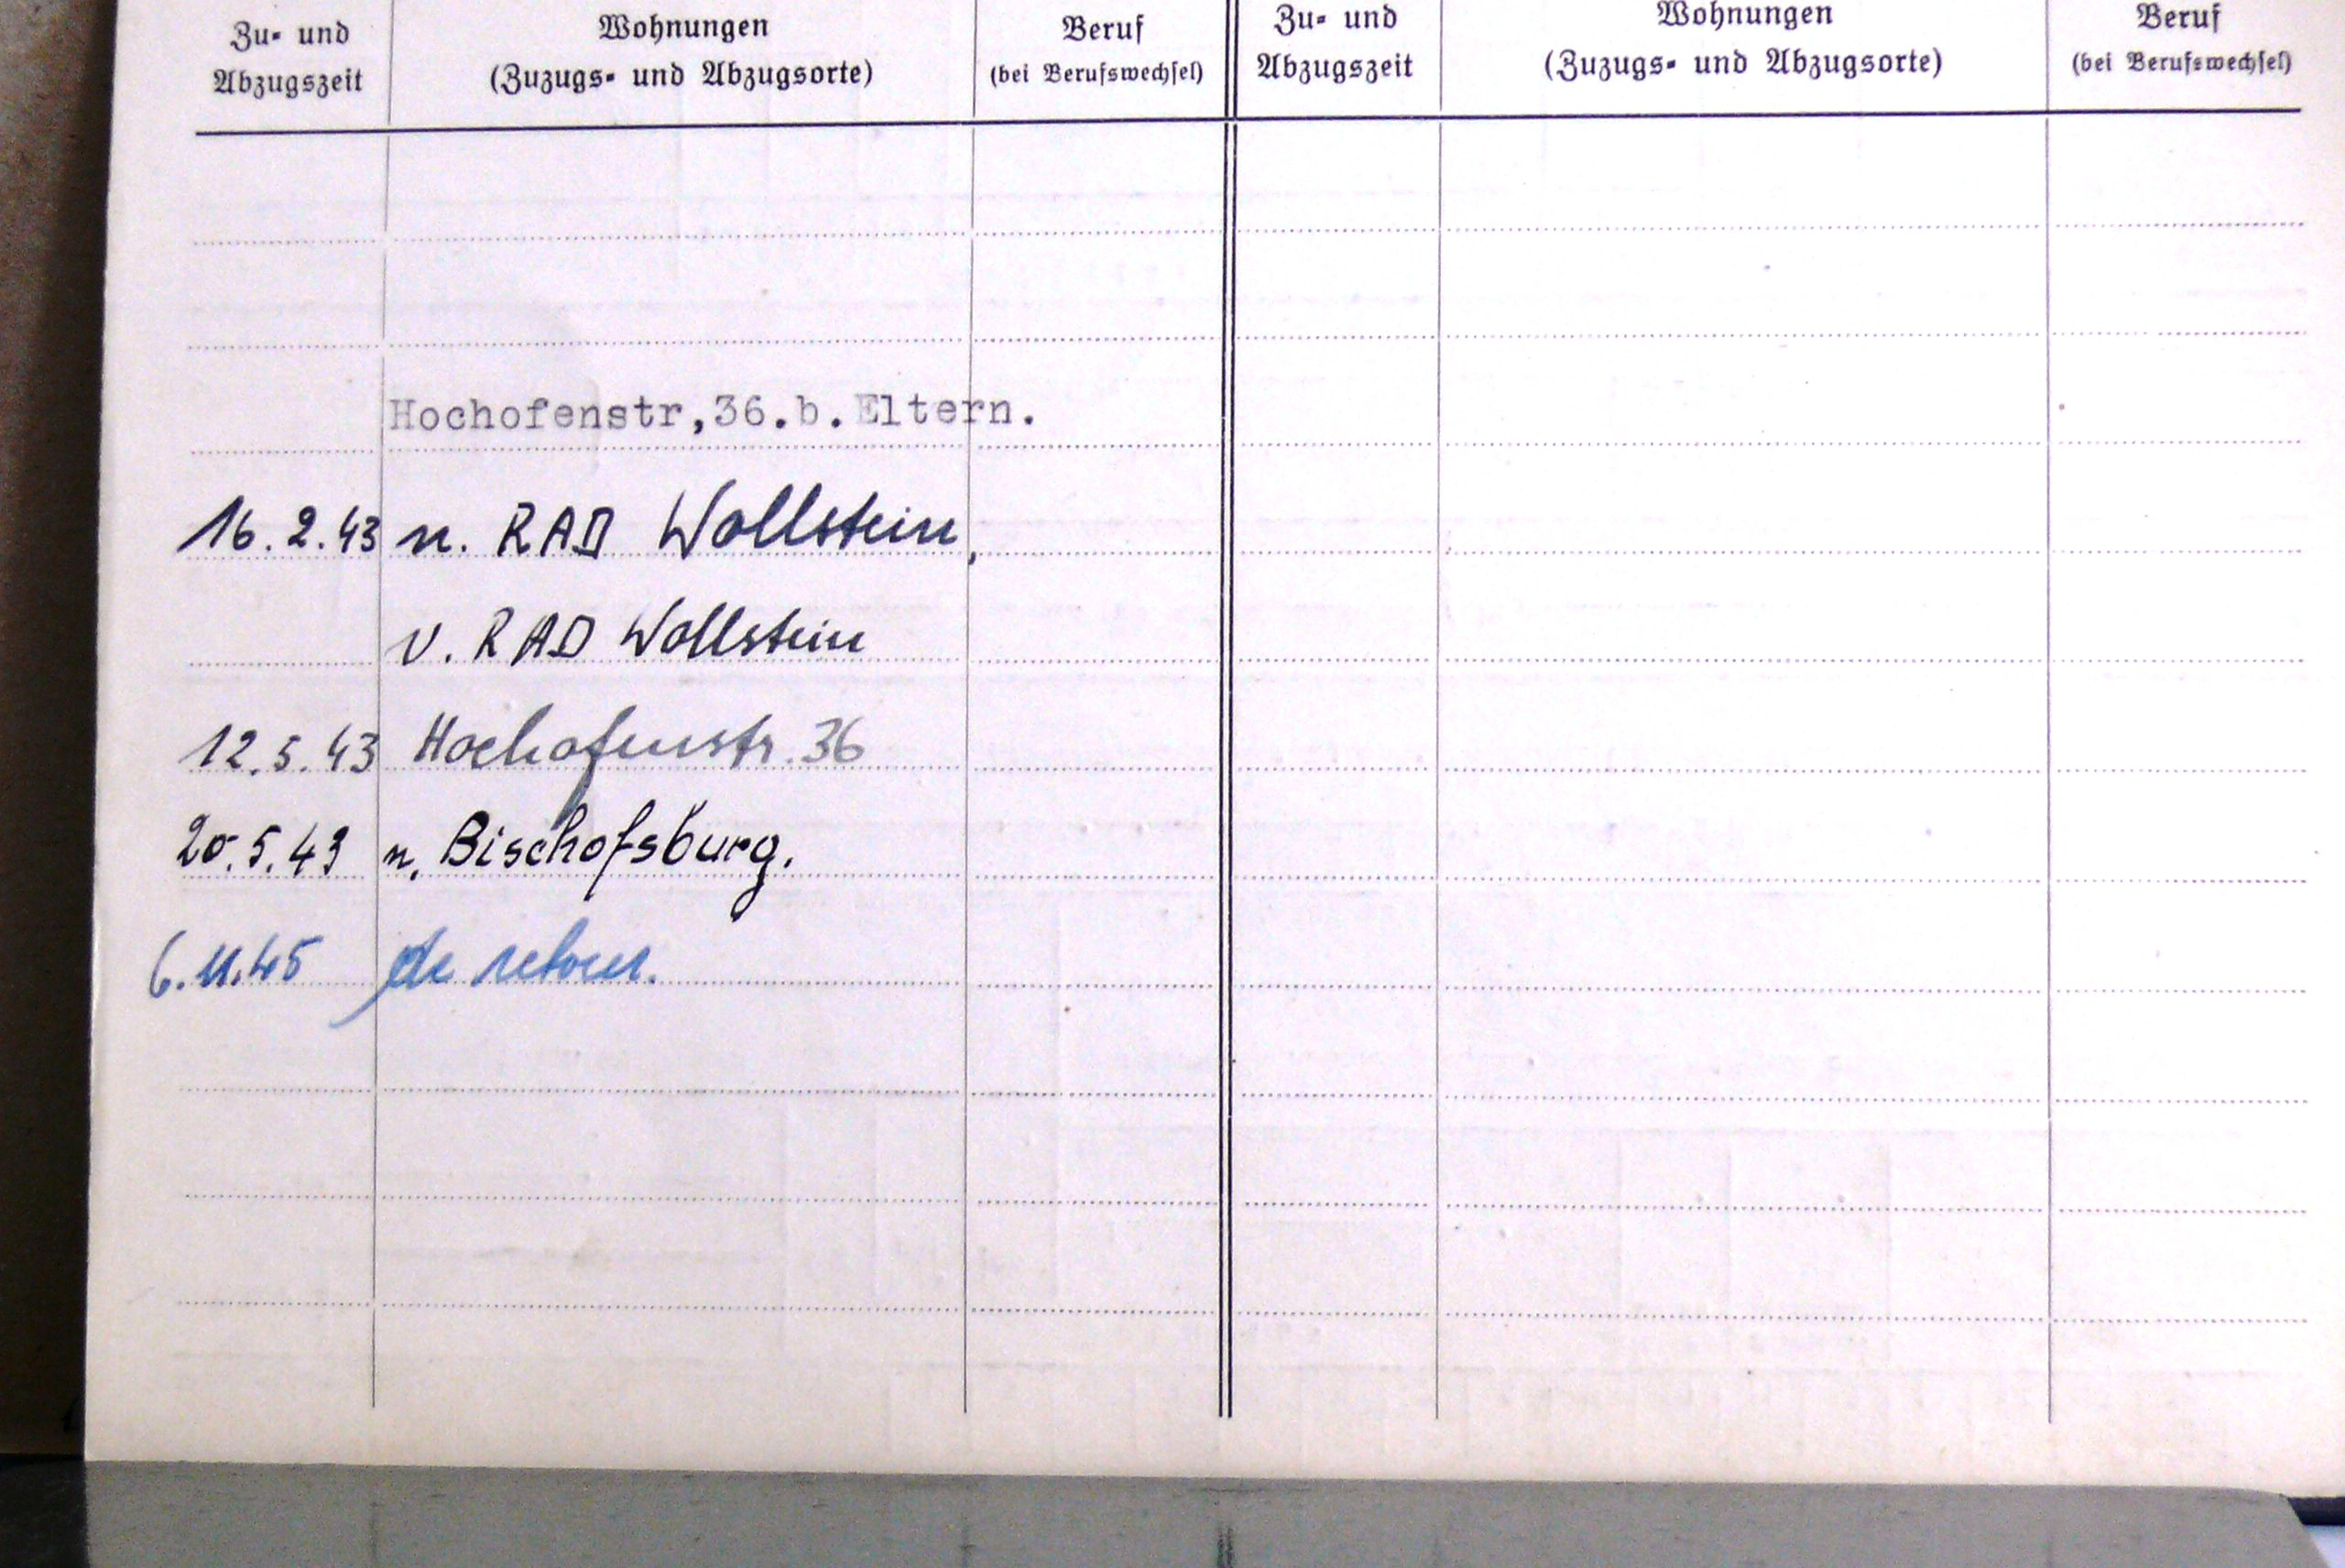 Zu- und Abzugszeit Wohnungen (Zuzugs- und Abzugsorte) Beruf (bei Berufswechsel) Zu- und Abzugszeit Wohnungen (Zuzugs- und Abzugsorte) Beruf (bei Berufswechsel)
Hochofenstr,36.b.Eltern.
16.2.43 n. RAD Wollstein,
v. RAD Wollstein
12.5.43 Hochofenstr. 36
20.5.43 n. Bischofsburg.
6.11.45 de retour.